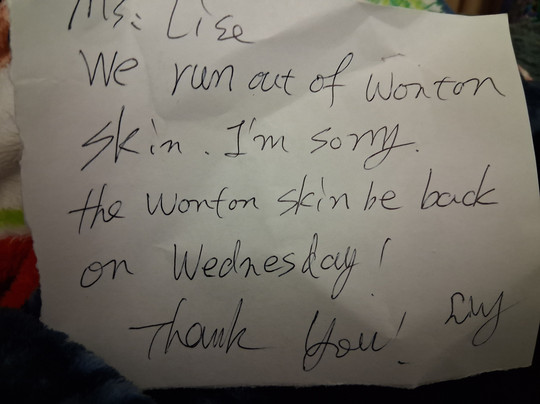 Ms: Lise
We run out of Wonton
skin. I'm sorry.
the wonton skin be back
on Wednesday!
Thank You!